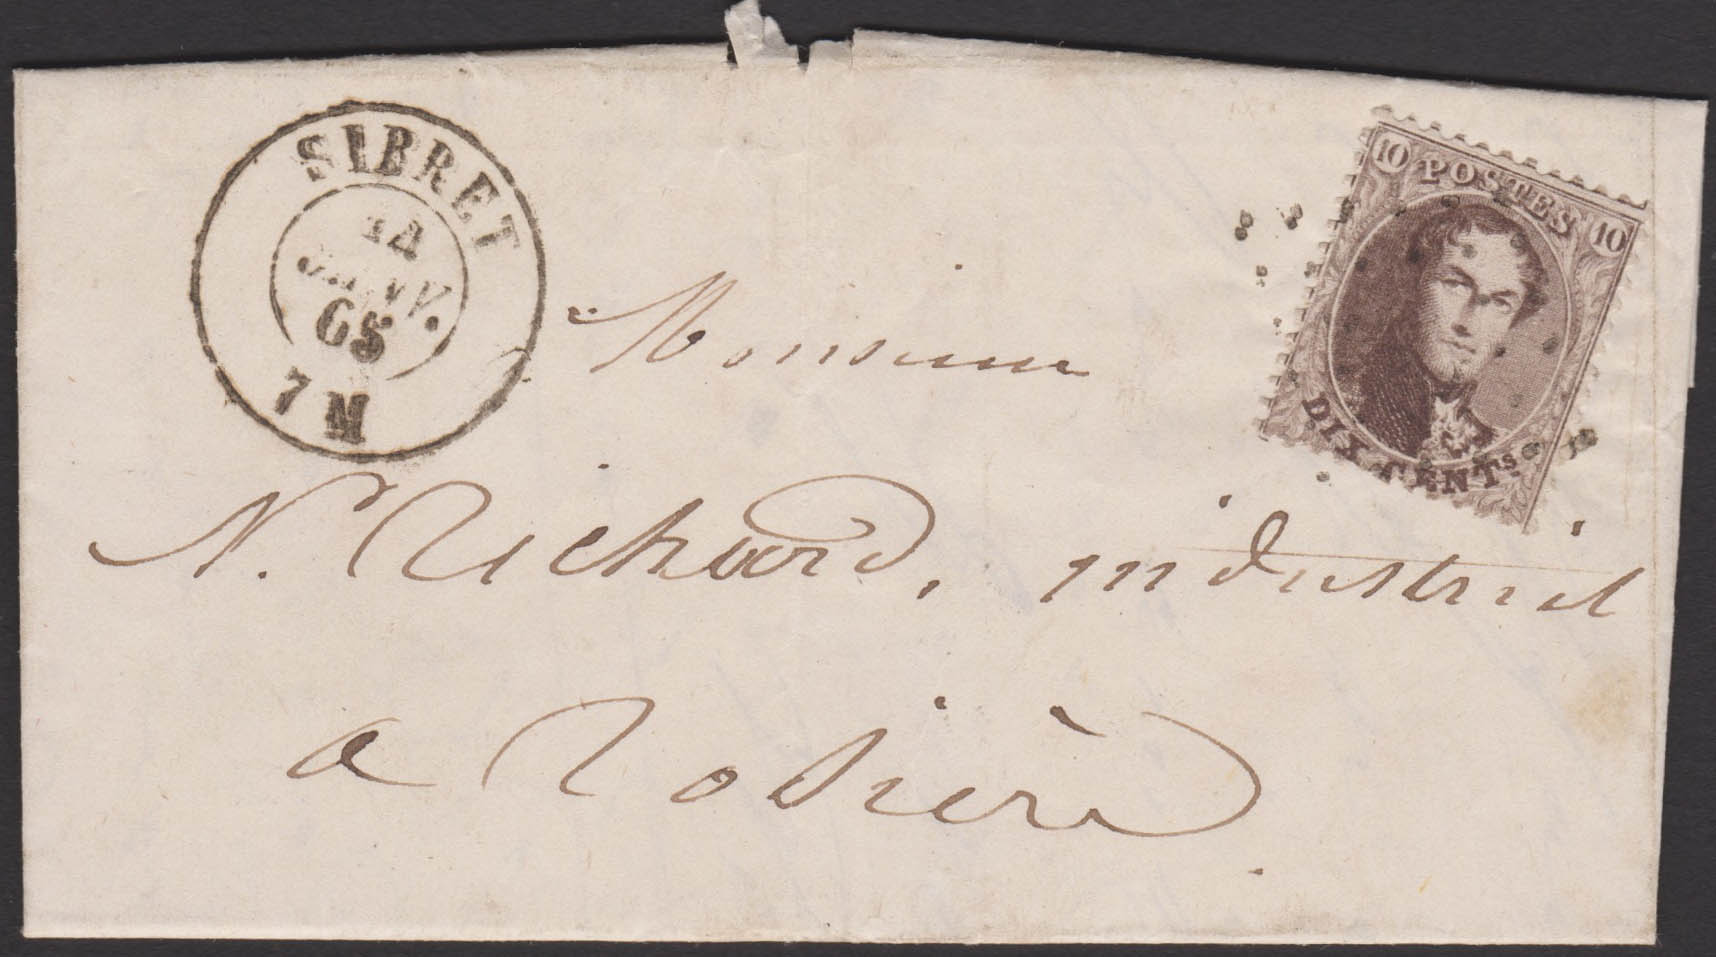 SIBRET
14
JANV.
65
7 M
10 POSTES 10
DIX CENTS
Monsieur
N. Richard, industriel
a